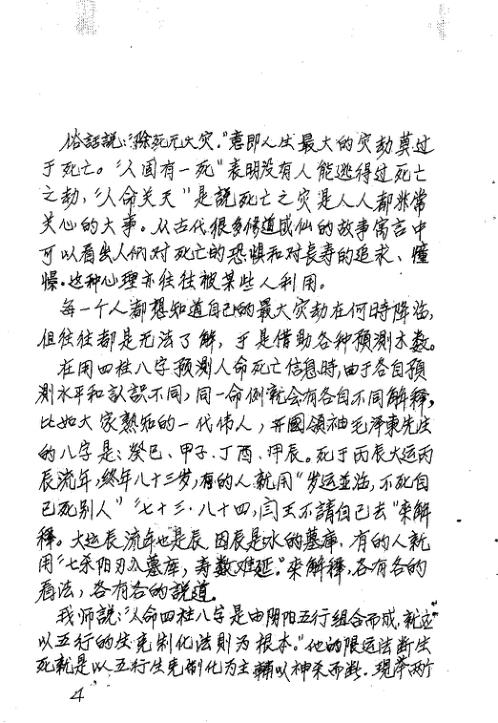 俗話説：“除死无大灾。”意即人生最大的灾劫莫过
于死亡。“人固有一死”表明没有人能逃得过死亡
之劫，“人命关天”是説死亡之灾是人人都非常
关心的大事。从古代很多修道成仙的故事寓言中
可以看出人们对死亡的恐惧和对長寿的追求、憧
憬。这种心理亦往往被某些人利用。
每一个人都想知道自己的最大灾劫在何時降临，
但往往都是无法了解，于是借助各种預测术数。
在用四柱八字預测人命死亡信息時，由于各自預
測水平和認識不同，同一命例就会有各自不同解釋，
比如大家熟知的一代偉人，开國領袖毛泽東先生
的八字是：癸巳、甲子、丁酉、甲辰。死于丙辰大运丙
辰流年，终年八十三岁，有的人就用“岁运並临，不死自
己死别人”“七十三、八十四，闫王不請自己去”来解
釋。大运辰流年也是辰，因辰是水的墓库，有的人就
用“七杀阳刃入墓库，寿数难延。”来解釋，各有各的
看法，各有各的説道。
我师説：“人命四柱八字是由阴阳五行组合而成，就应
以五行的生克制化法则为根本。”他的限运法断生
死就是以五行生克制化为主，輔以神杀而断。现举两个
4